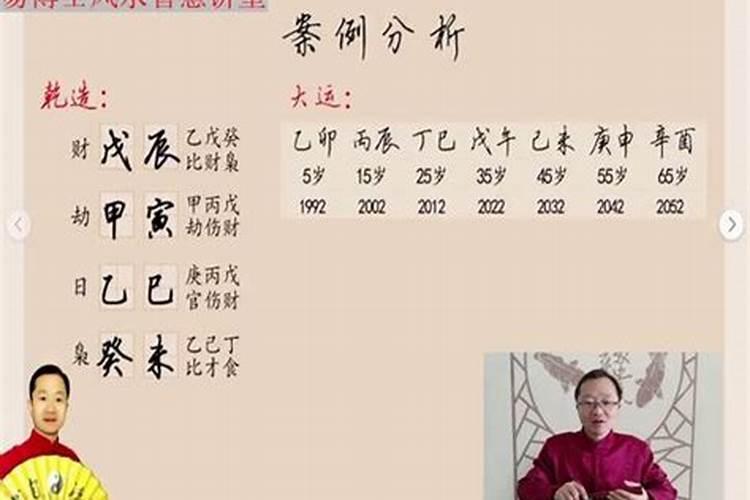 易博士风水智慧讲堂
案例分析
乾造：
大运：
财 戊 辰 乙戊癸
比财枭
劫 甲 寅 甲丙戊
劫伤财
日 乙 巳 庚丙戊
官伤财
枭 癸 未 乙己丁
比才食
乙卯 丙辰 丁巳 戊午 己未 庚申 辛酉
5岁 15岁 25岁 35岁 45岁 55岁 65岁
1992 2002 2012 2022 2032 2042 2052